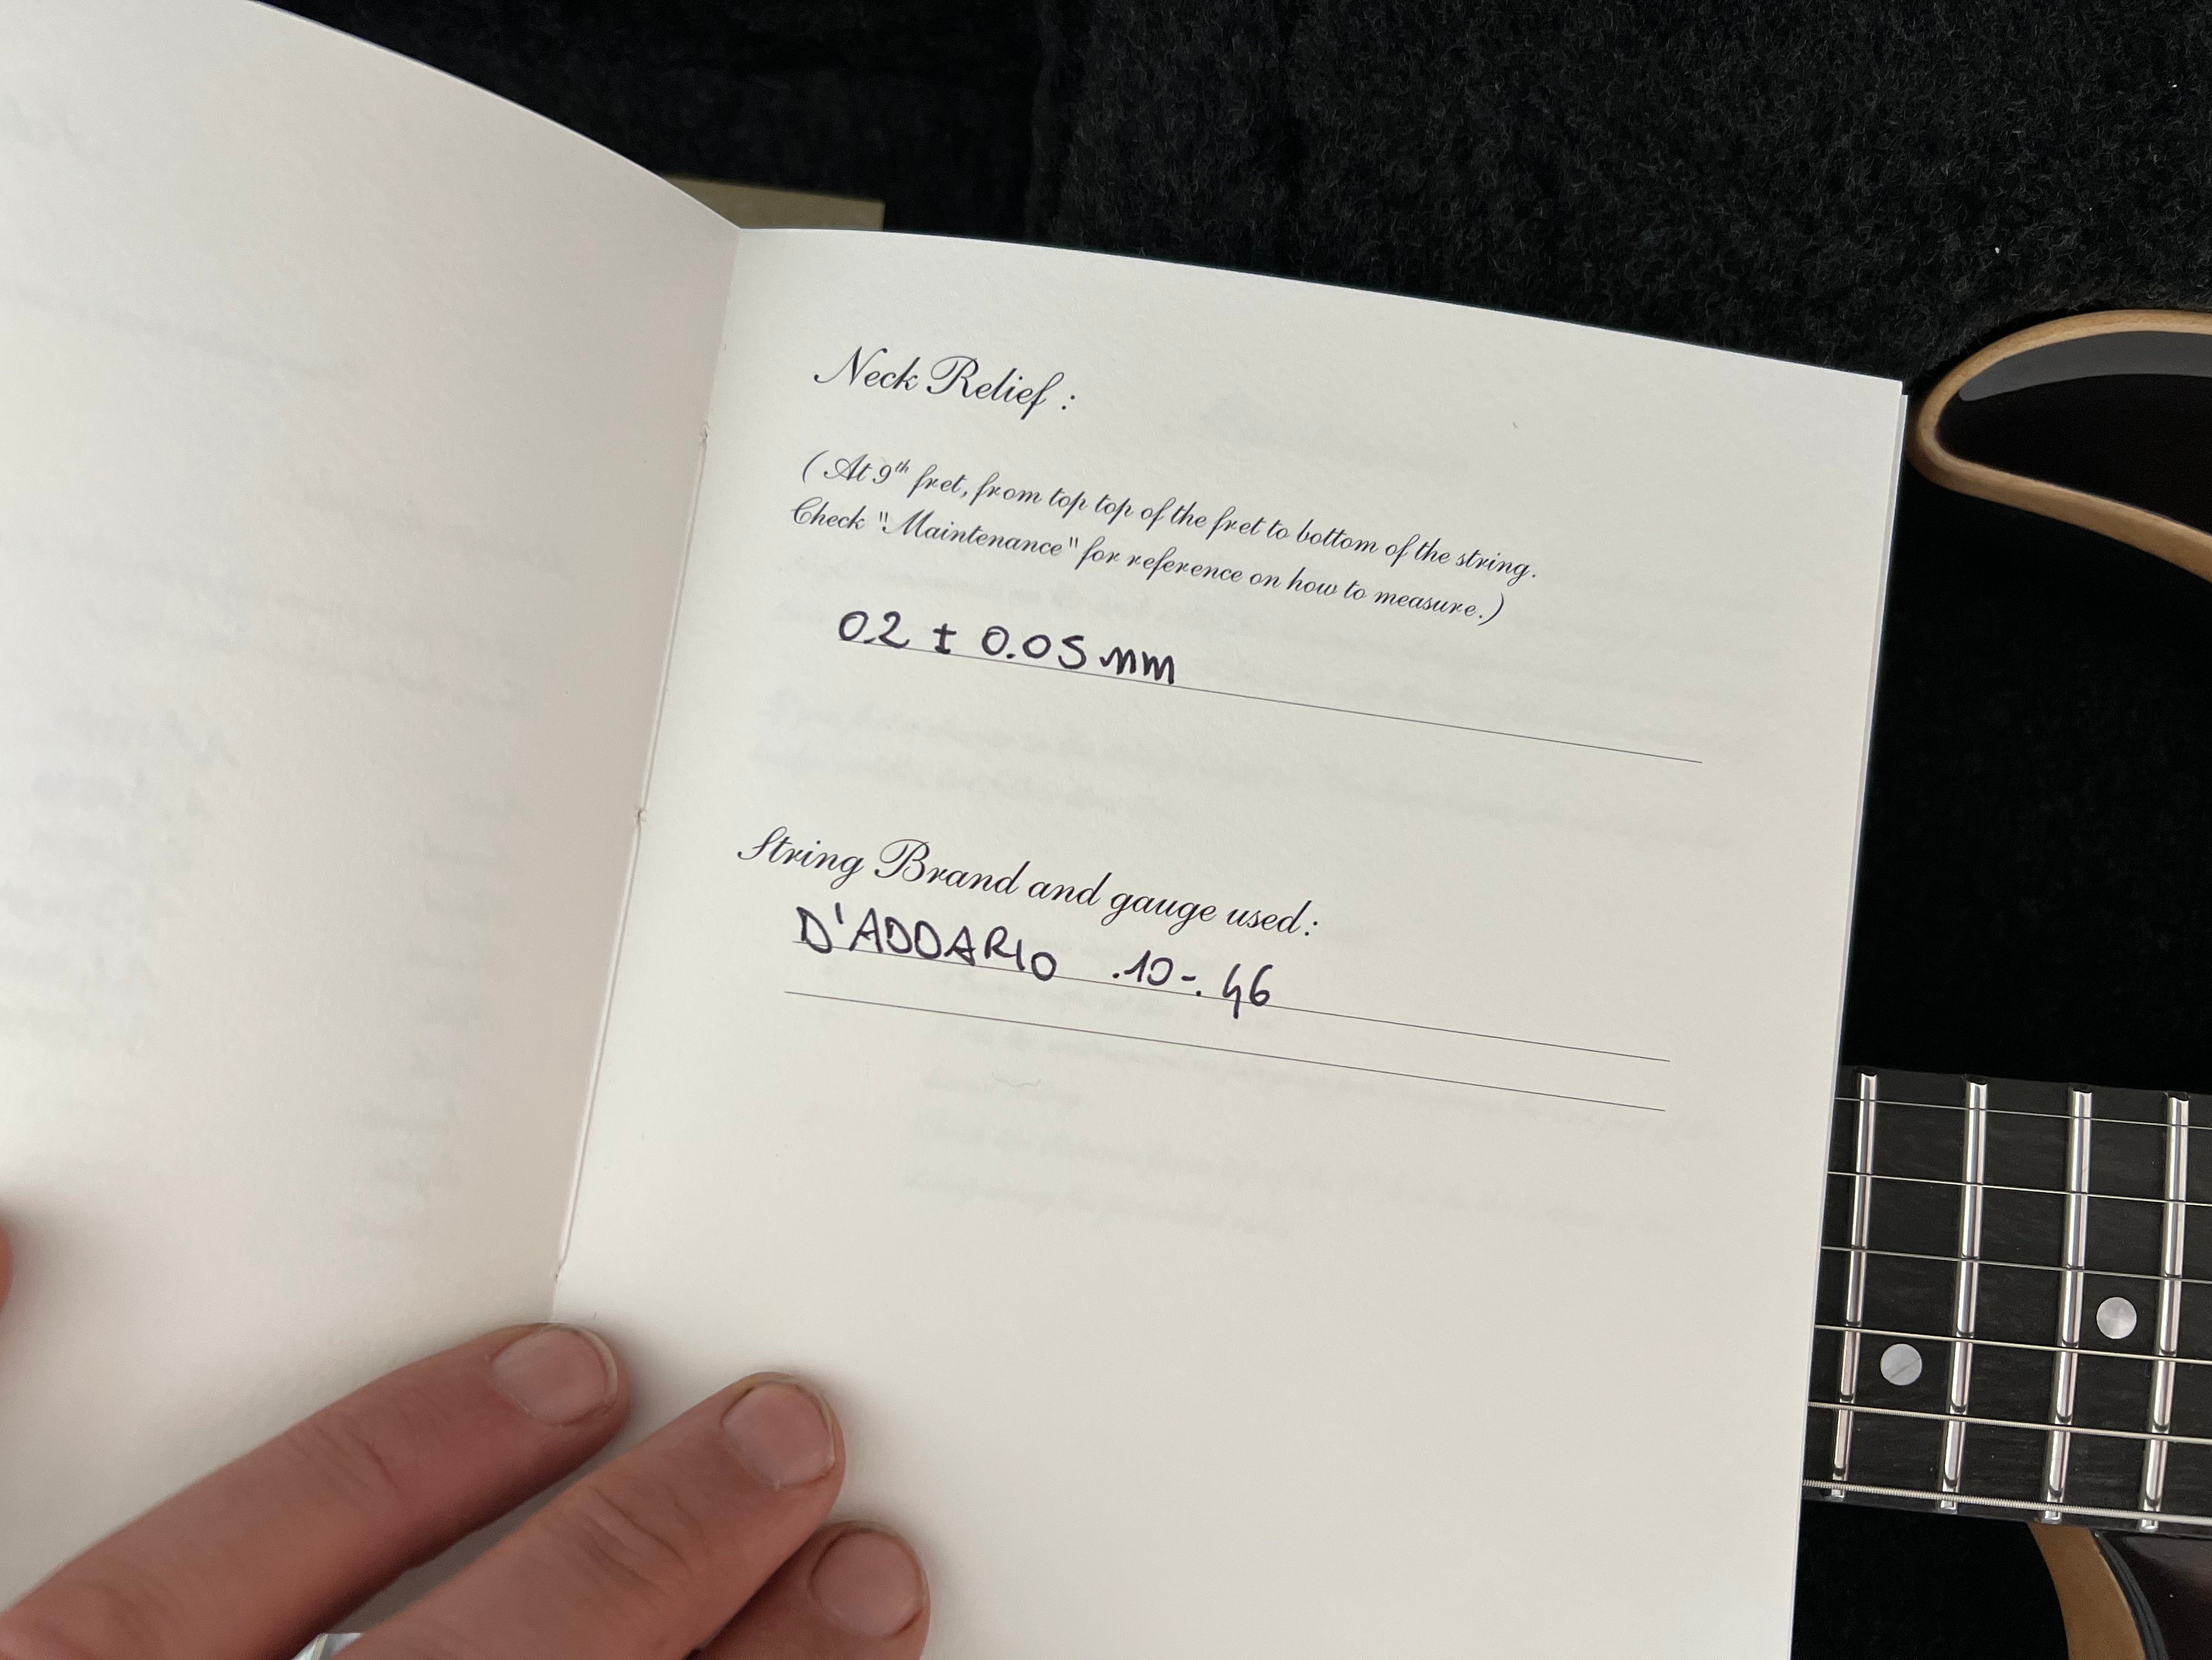 Neck Relief :
(At 9th fret, from top top of the fret to bottom of the string.
Check "Maintenance" for reference on how to measure.)
0.2 ± 0.05 mm
String Brand and gauge used:
D'ADDARIO .10-.46